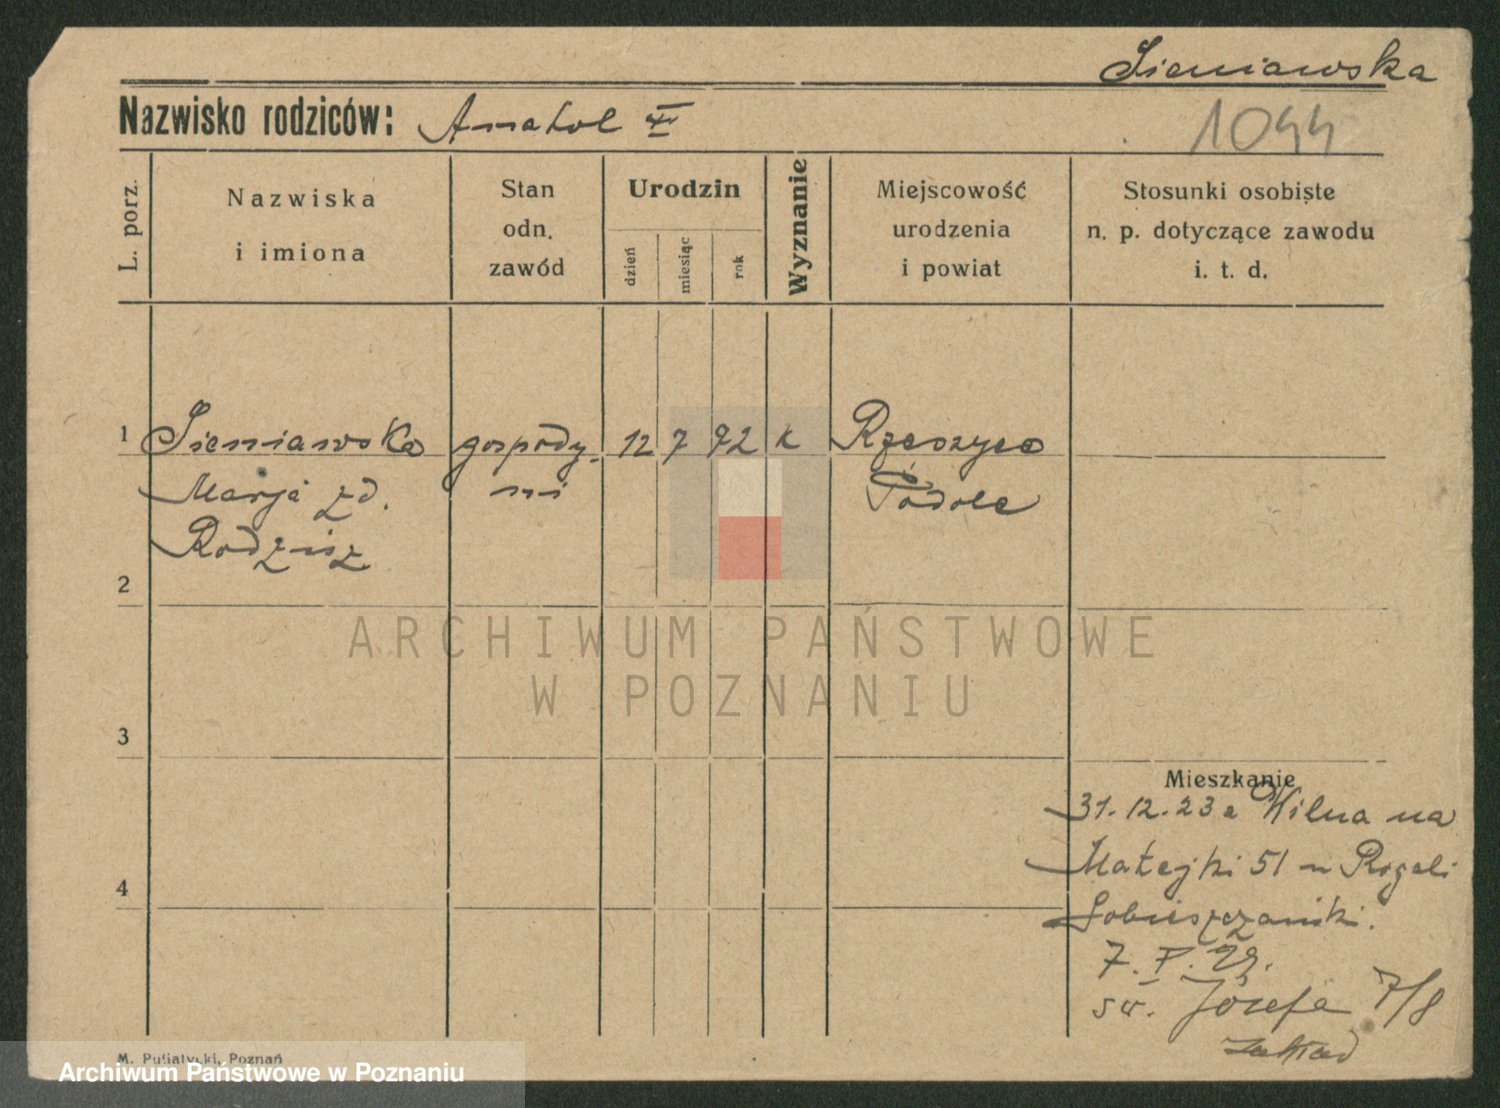 Sieniawska
Nazwisko rodziców: Anatol
1044
L. porz.
Nazwiska
i imiona
Stan
odn.
zawód
Urodzin
dzień
miesiąc
rok
Wyznanie
Miejscowość
urodzenia
i powiat
Stosunki osobiste
n. p. dotyczące zawodu
i. t. d.
1 Sieniawska gospody- 12 7 92 k Rzeszyca
Marja zd. ni Podole
Rodzisz
2
ARCHIWUM PAŃSTWOWE
W POZNANIU
3
Mieszkanie
31.12.23 z Wilna na
4 Matejki 51 u Rogali
Sobieszczański.
7. V. 29.
św. Józefa 7/8
zakład
M. Putiatycki, Poznań
Archiwum Państwowe w Poznaniu